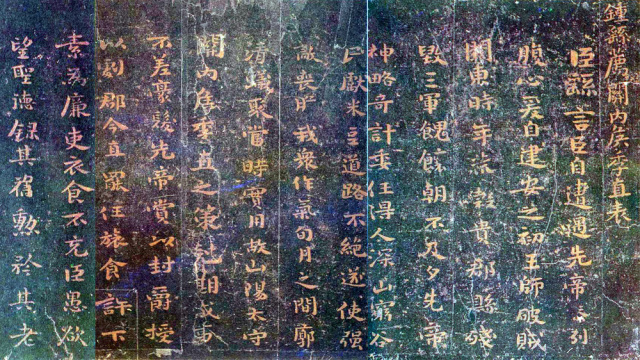 鍾繇薦關内侯季直表
臣繇言臣自遭遇先帝忝列
腹心爰自建安之初王師破賊
關東時年荒穀貴郡縣殘
毀三軍餽饟朝不及夕先帝
神略奇計委任得人深山窮谷
民獻米豆道路不絕遂使强
敵喪膽我衆作氣旬月之間廓
清蟻聚當時實用故山陽太守
關内侯季直之策尅期成事
不差豪髮先帝賞以封爵授
以劇郡今直罷任旅食許下
素為廉吏衣食不充臣愚欲
望聖德録其舊勲矜其老